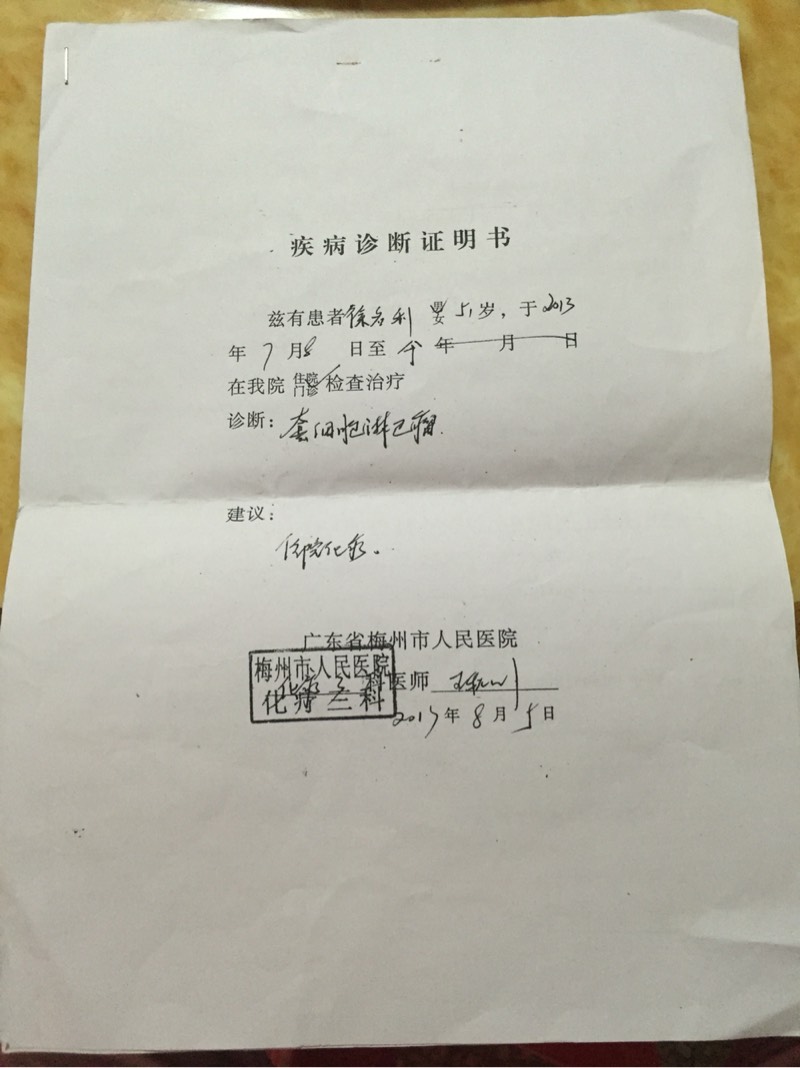 疾病诊断证明书
兹有患者徐名利 男女 51岁，于2013
年7月8日至今年 月 日
在我院住院门诊检查治疗
诊断：套细胞淋巴瘤.
建议：
住院化疗。
广东省梅州市人民医院
梅州市人民医院
化疗三科
科医师
2013年8月5日